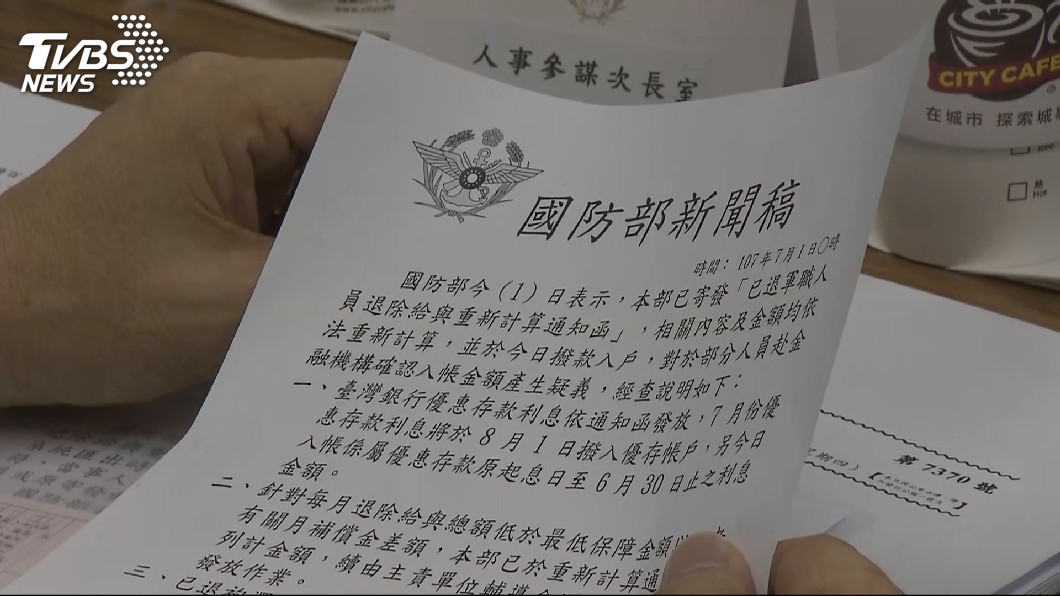 TVBS
NEWS
人事參謀次長室
CITY CAFE
在城市 探索城
熱
Hot
國防部新聞稿
時間：107年7月1日○時
國防部今（1）日表示，本部已寄發「已退軍職人
員退除給與重新計算通知函」，相關內容及金額均依
法重新計算，並於今日撥款入戶，對於部分人員赴金
融機構確認入帳金額產生疑義，經查說明如下：
一、臺灣銀行優惠存款利息依通知函發放，7月份優
惠存款利息將於8月1日撥入優存帳戶，另今日
入帳係屬優惠存款原起息日至6月30日止之利息
金額。
二、針對每月退除給與總額低於最低保障金額
有關月補償金差額，本部已於重新計算通
列計金額，續由主責單位輔導
發放作業。
三、已退
第 7370 號
期四）